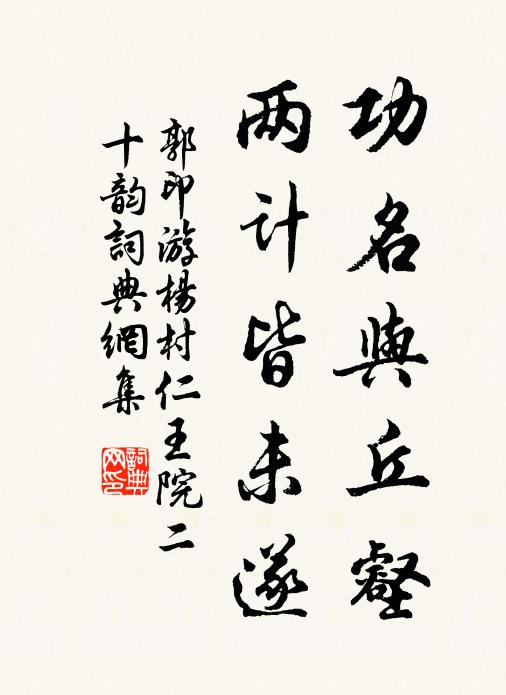 功名與丘壑
两计皆未遂
郭印游楊村仁王院二
十韵詞典網集
詞典网印